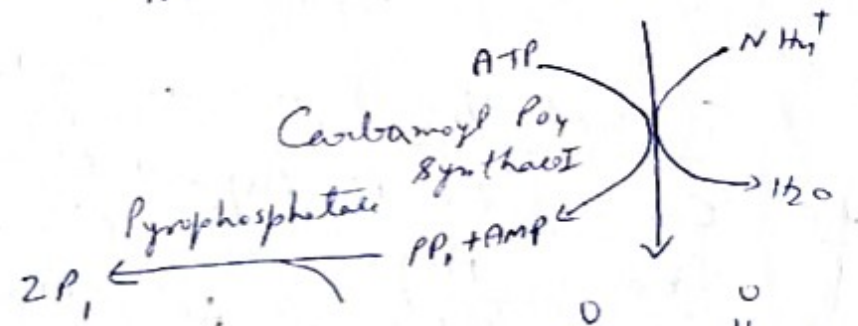 ATP NH4+
Carbamoyl Poy
SynthaseI
Pyrophosphatase
H2O
PPi + AMP
2Pi
O O